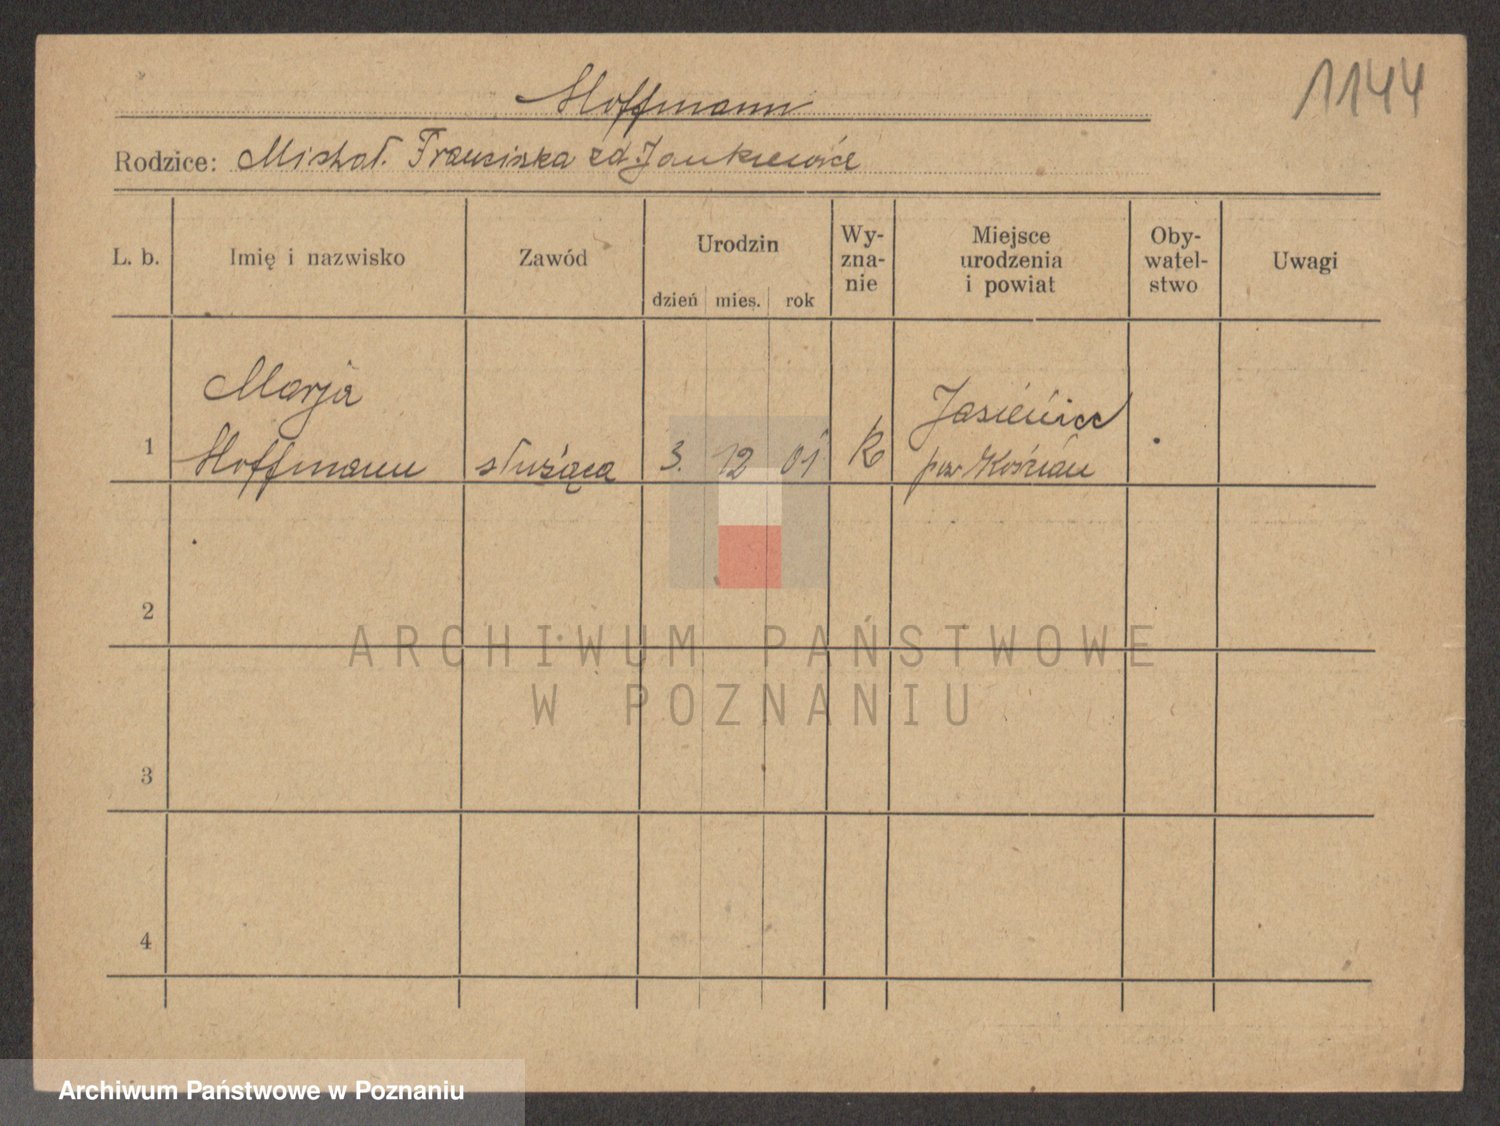 1144
Hoffmann
Rodzice: Michał. Franciszka zd. Jankiewicz
L. b. Imię i nazwisko Zawód Urodzin dzień mies. rok Wy-zna-nie Miejsce urodzenia i powiat Oby-watel-stwo Uwagi
Marja
1 Hoffmann służąca 3. 12 01 k Jasień
pow Kościan
2
3
4
ARCHIWUM PAŃSTWOWE
W POZNANIU
Archiwum Państwowe w Poznaniu